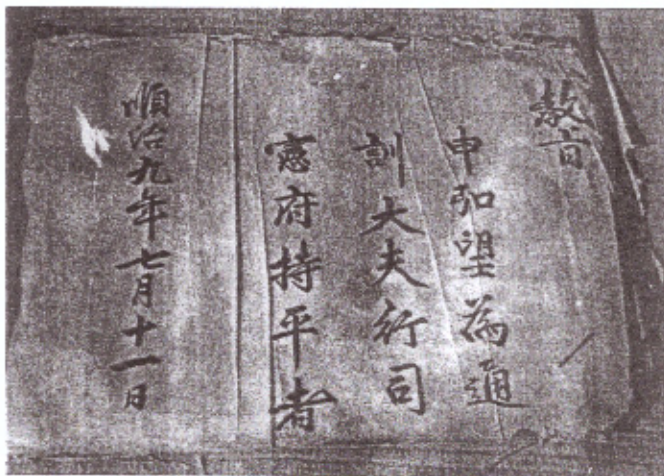 敎旨
申弘望為通
訓大夫行司
憲府持平者
順治九年七月十一日